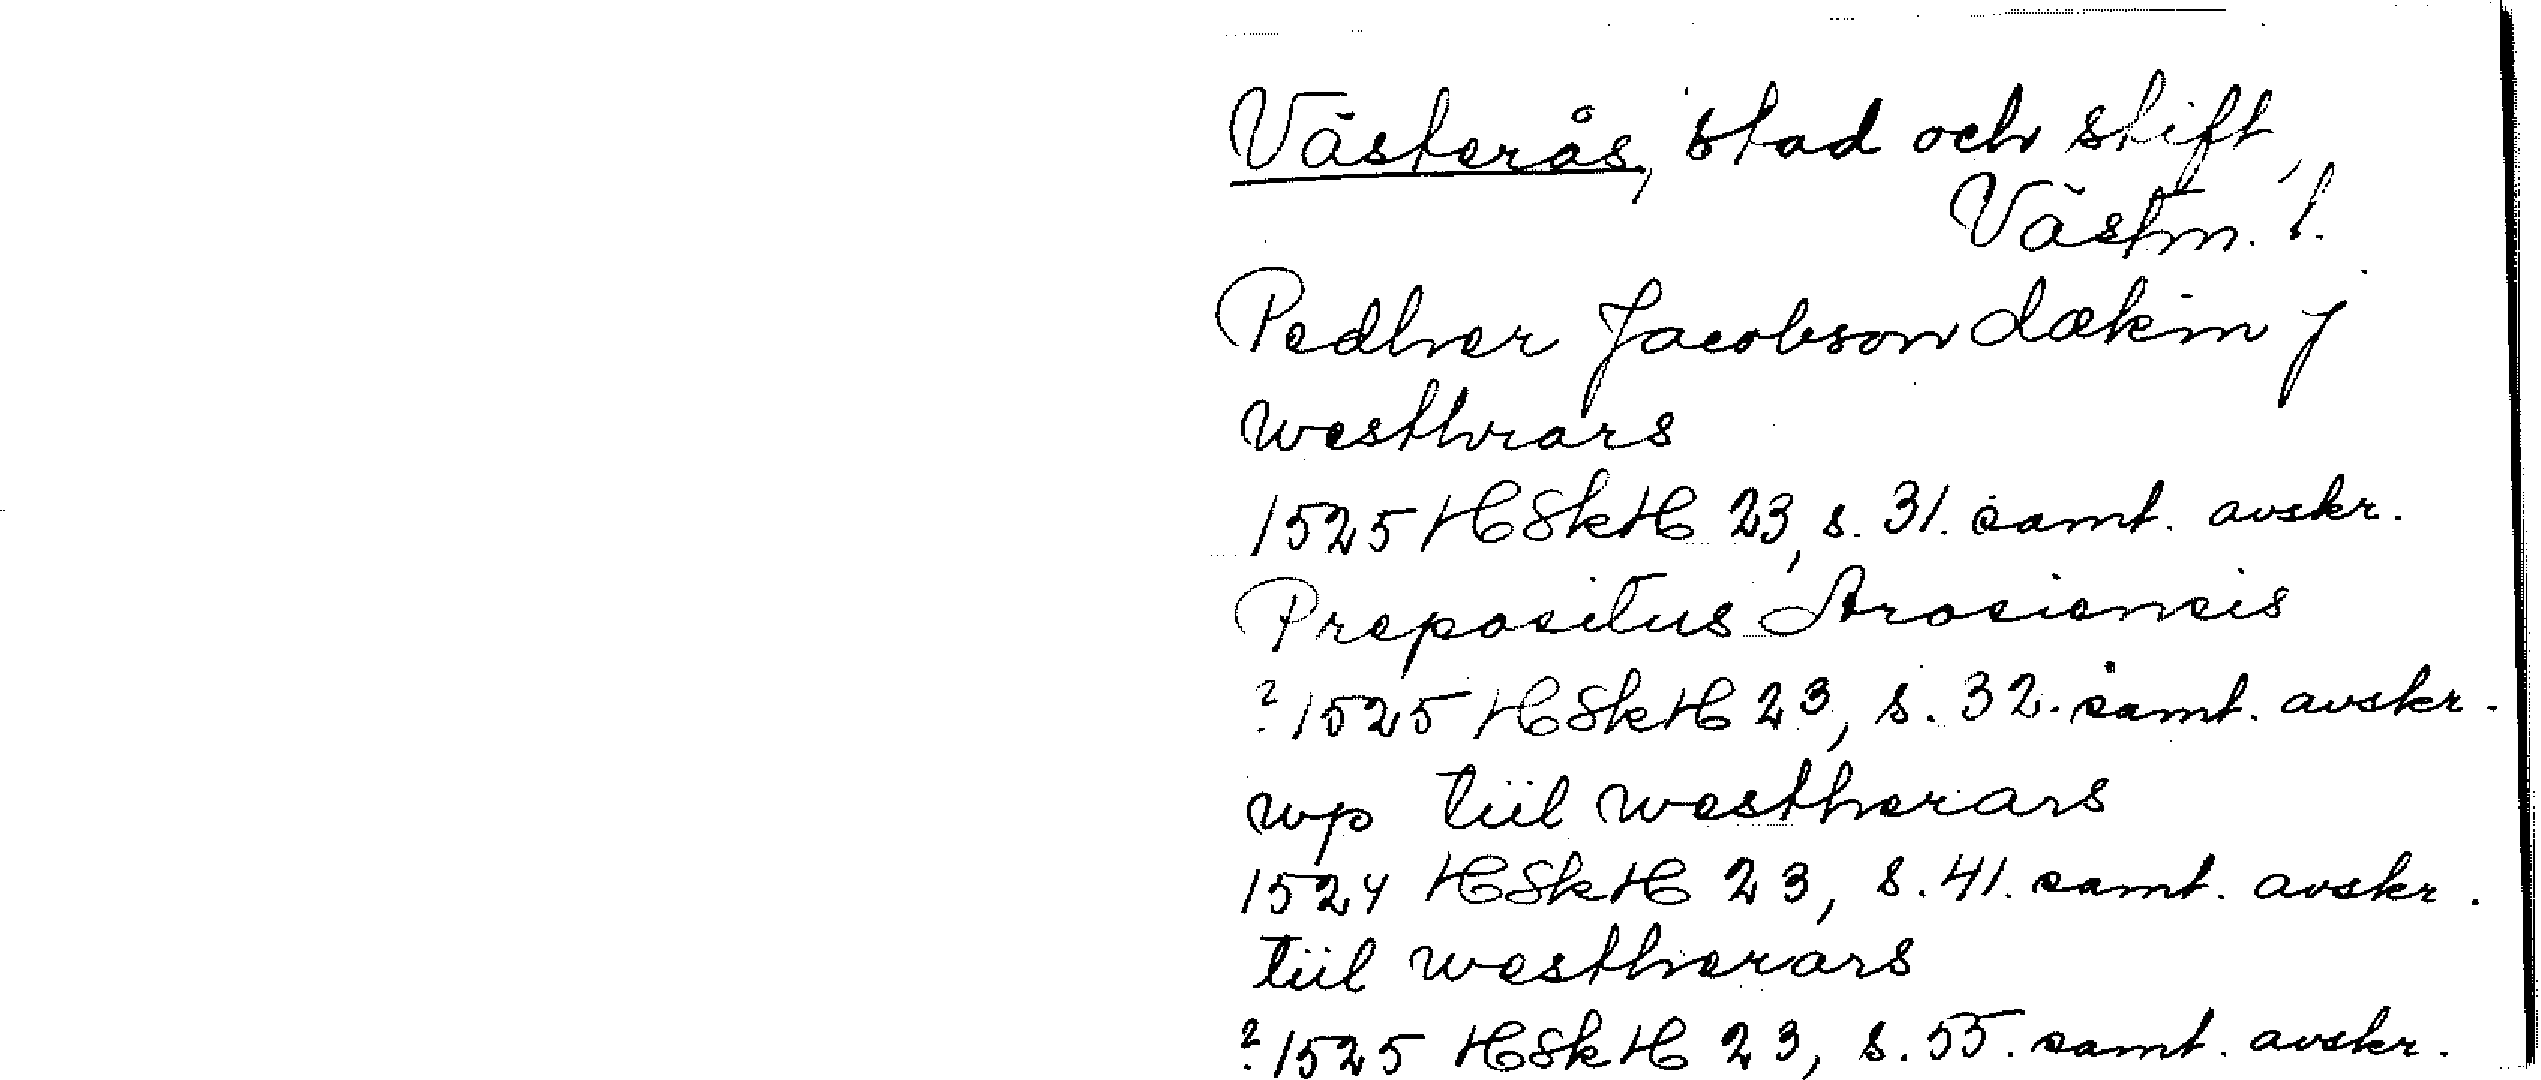 Västerås, stad och stift,
Västm. l.
Pedher Jacobson dækin j
westhrars
1525 HSkH 23, s. 31. samt. avskr.
Prepositus Arosiensis
? 1525 HSkH 23, s. 32. samt. avskr.
wp tiil westherars
1524 HSkH 23, s. 41. samt. avskr.
tiil westherars
? 1525 HSkH 23, s. 55. samt. avskr.